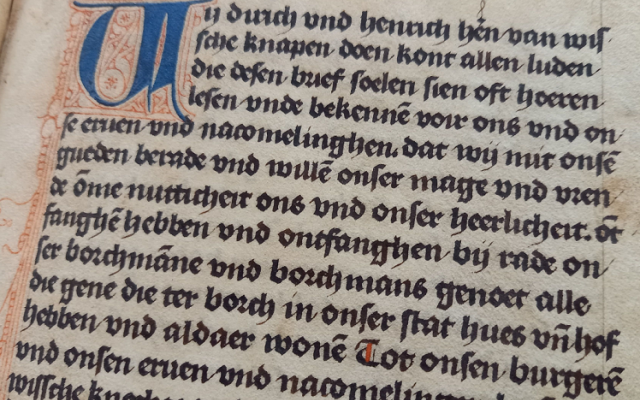 Wij durch vnd henrich hēn van wis
sche knapen doen kont allen luden
die desen brief soelen sien oft hoeren
lesen vnde bekennē voir ons vnd on
se eruen vnd nacomelinghen. dat wij mit onsē
gueden berade vnd willē onser mage vnd vren
de ōme nutticheit ons vnd onser heerlicheit. ōt
fanghē hebben vnd ontfanghen bij rade on
ser borchmāne vnd borchmans genoet alle
die gene die ter borch in onser stat hues vn̄ hof
hebben vnd aldaer wonē Tot onsen burgerē
vnd onsen eruen vnd nacomelingen
wissche